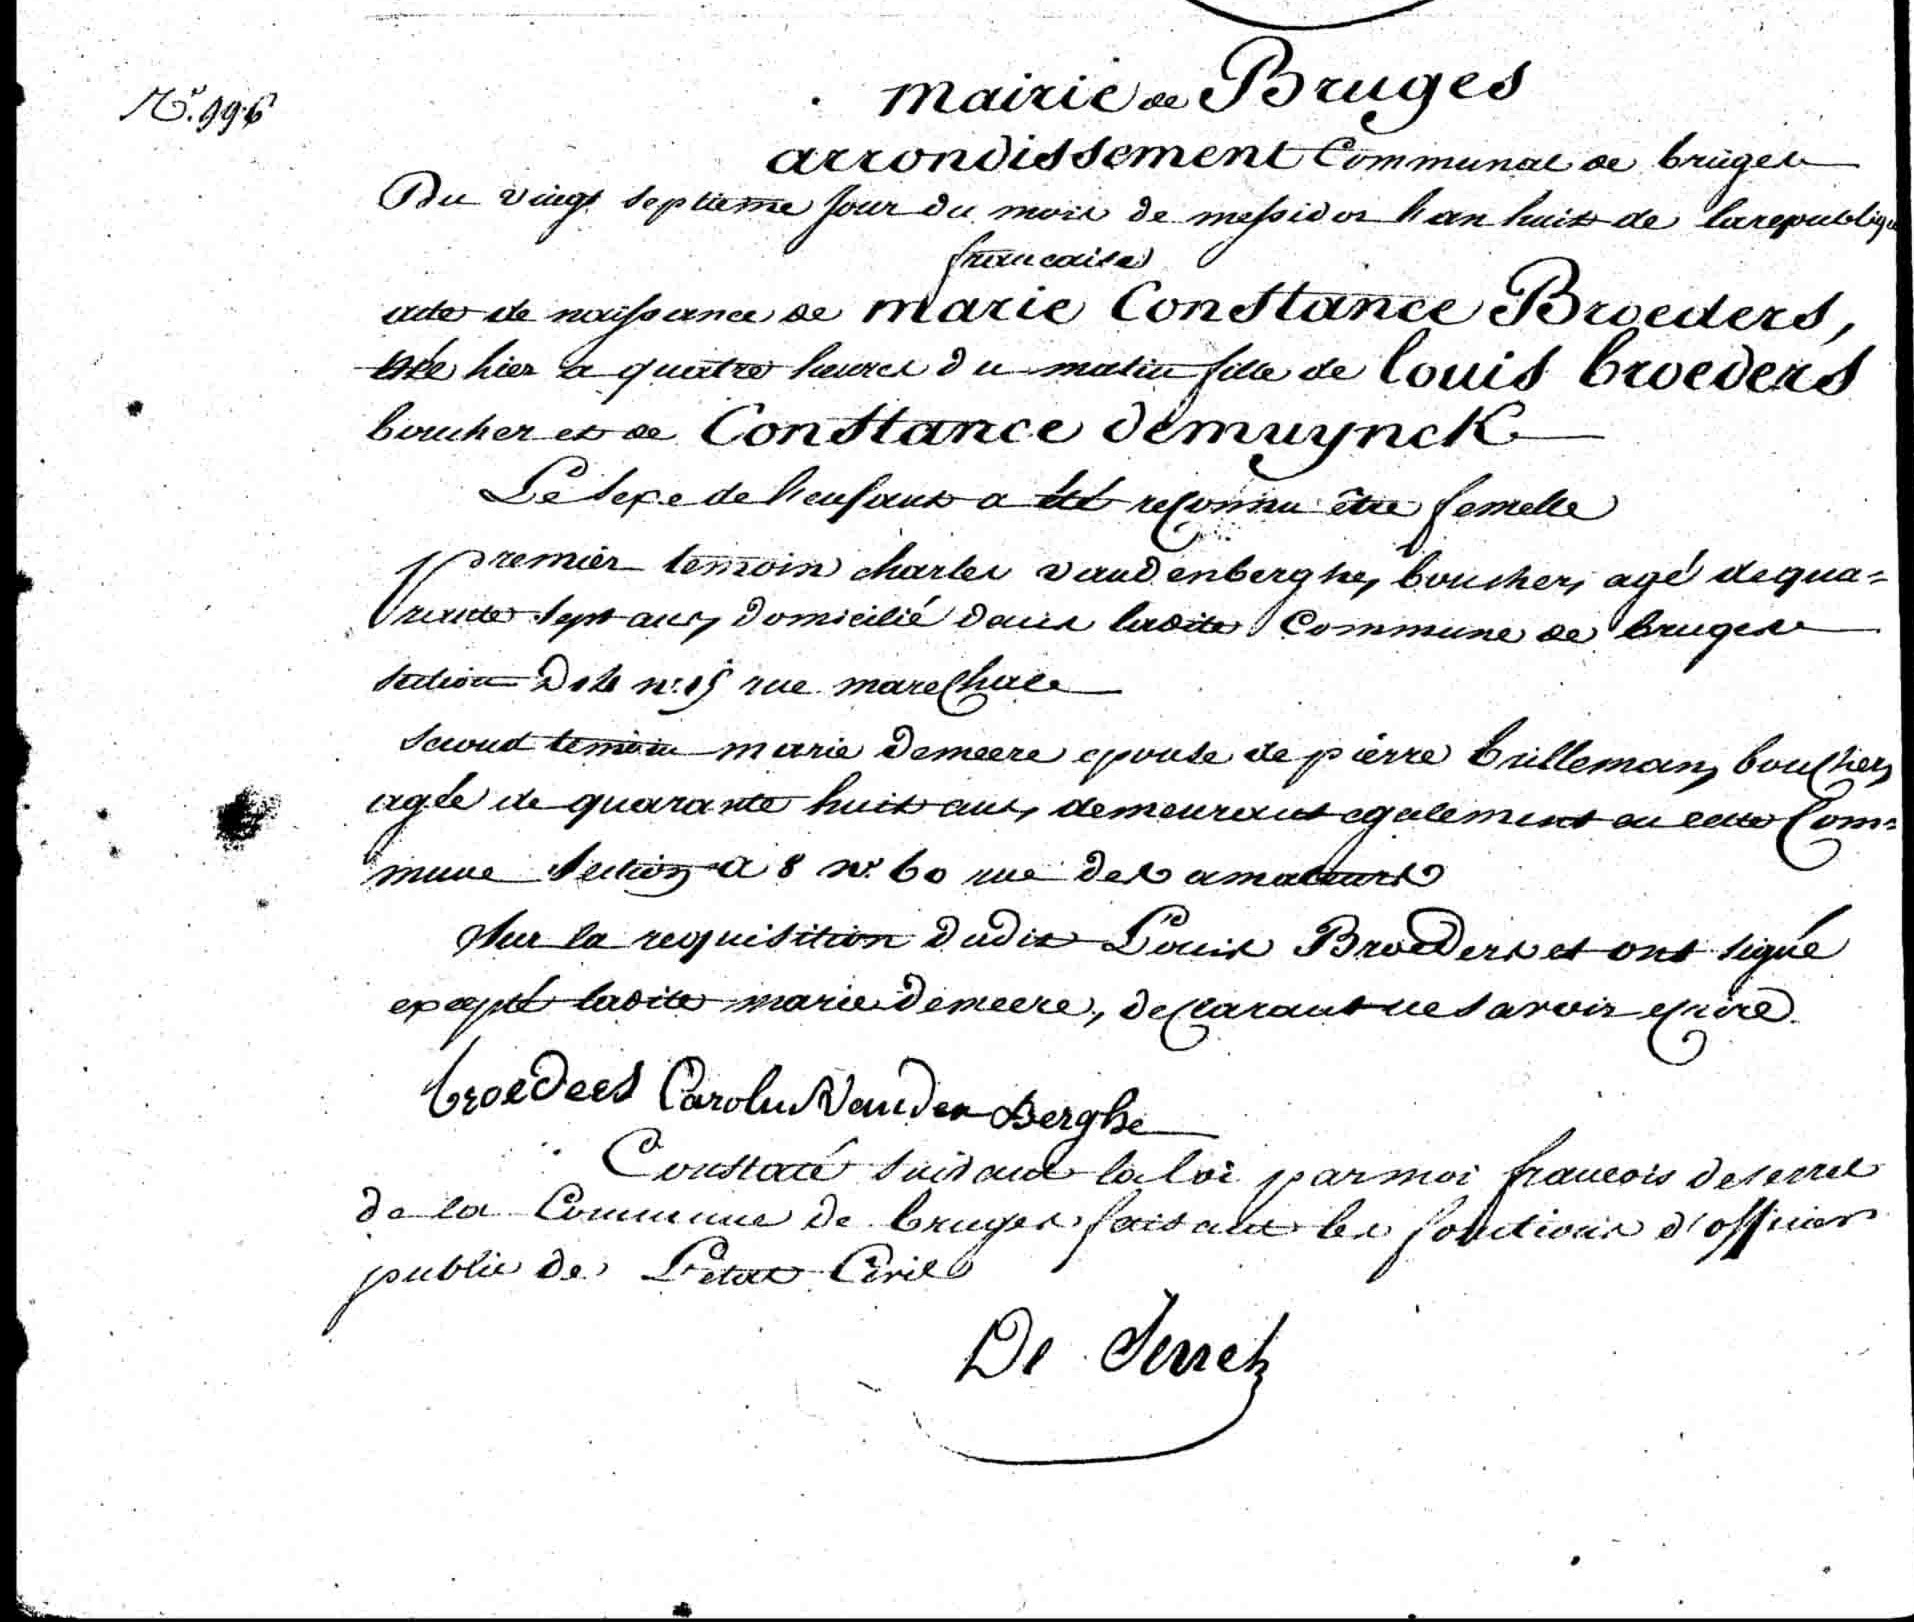 N.º 996
mairie de Bruges
arrondissement Communal de bruges
Du vingt septieme jour du mois de messidor l'an huit de la republique
francaise
acte de naissance de marie Constance Broeders,
née hier a quatre heures du matin fille de louis broeders
boucher et de Constance demuynck
Le sexe de l'enfant a été reconnu être femelle
premier temoin charles vandenberghe, boucher, agé de qua=
rante sept ans, domicilié dans ladite Commune de bruges
section D 14 nº 15 rue marechale
second temoin marie demeere epouse de pierre brilleman, boucher,
agée de quarante huit ans, demeurant egalement en cette Com=
mune section a 8 nº 60 rue des amateurs
Sur la requisition dudit Louis Broeders et ont signé
excepté ladite marie demeere, declarant ne savoir ecrire.
broeders Carolus Vanden Berghe
Constaté suivant la loi par moi francois deserret
de la Commune de bruges faisant les fonctions d'officier
public de L'etat Civil
De Serret